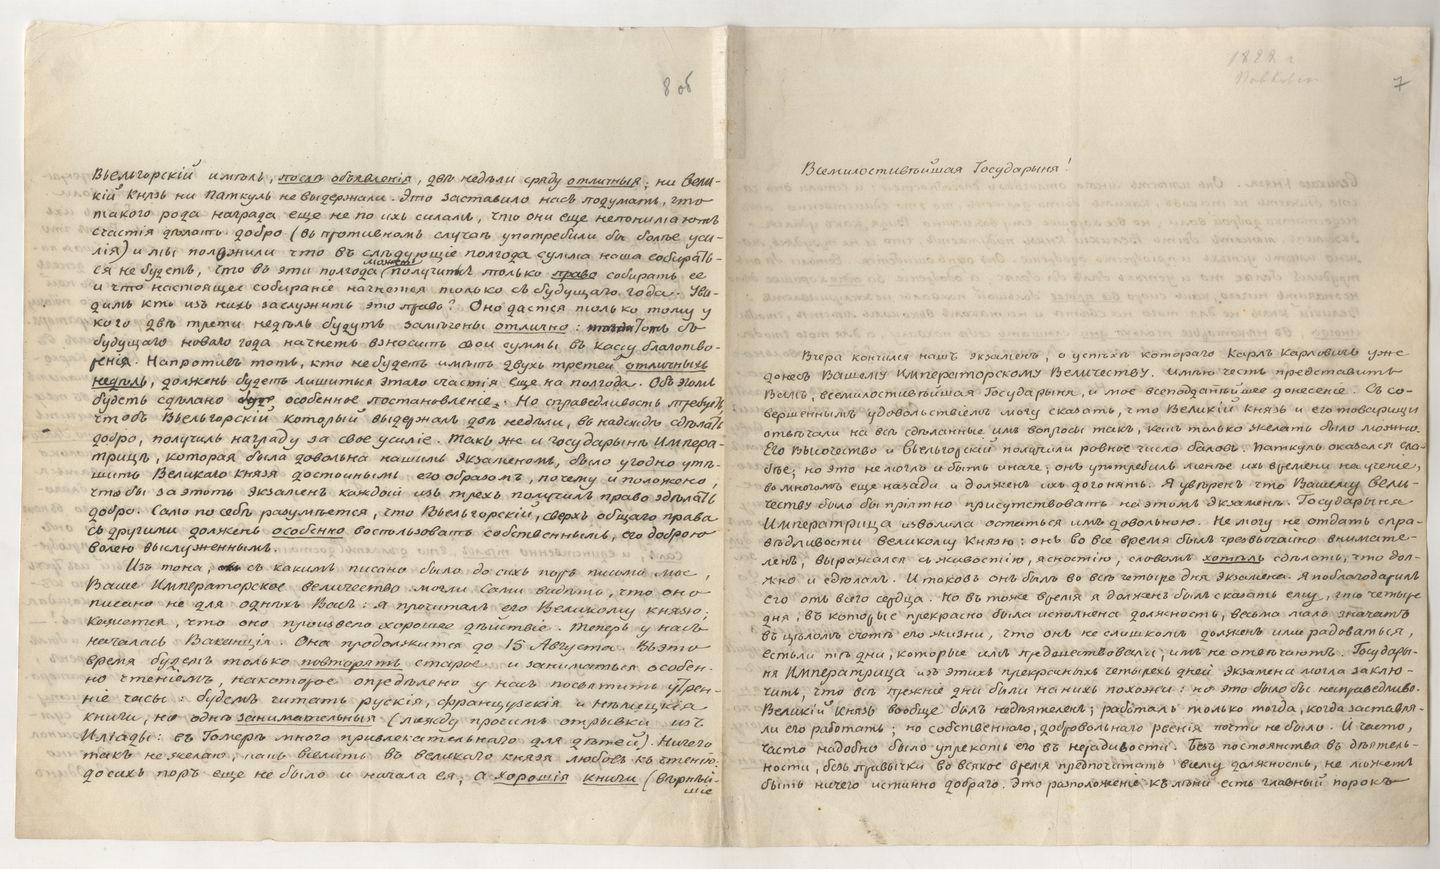 8 об
Вьельгорскій имѣлъ, послѣ объявленія, двѣ недѣли сряду отличныя; ни Вели-
кій Князь ни Паткуль не выдержали. Это заставило насъ подумать, что
такого рода награда еще не по ихъ силамъ, что они еще непонимаютъ
счастія дѣлать добро (въ противномъ случаѣ употребили бы болѣе уси-
лія) и мы положили что въ слѣдующіе полгода сумма наша собирать-
ся не будетъ, что въ эти полгода можно получить только право собирать ее
и что настоящее собираніе начнется только съ будущаго года. Уви-
димъ кто изъ нихъ заслужитъ это право? Оно дастся только тому у
кого двѣ трети недѣль будутъ замѣчены отлично: тотъ съ
будущаго новаго года начнетъ взносить свои суммы въ кассу благотво-
ренія. Напротивъ тотъ, кто небудетъ имѣть двухъ третей отличныхъ
недѣль, долженъ будетъ лишиться этаго счастія еще на полгода. Объ этомъ
будетъ сдѣлано особенное постановленіе. Но справедливость требуетъ,
чтобъ Вьельгорскій который выдержалъ двѣ недѣли, въ надеждѣ сдѣлать
добро, получилъ награду за свое усиліе. Такъ же и государынѣ Импера-
трицѣ, которая была довольна нашимъ экзаменомъ, было угодно утѣ-
шить Великаго Князя достойнымъ его образомъ, почему и положено,
чтобы за этотъ экзаменъ каждой изъ трехъ получилъ право здѣлать
добро. Само по себѣ разумѣется, что Вьельгорскій, сверхъ общаго права
съ другими долженъ особенно воспользовать собственнымъ, его доброю
волею выслуженнымъ.
Изъ тона, съ какимъ писано было до сихъ поръ письмо мое,
Ваше Императорское величество могли сами видѣть, что оно
писано не для однѣхъ Васъ: я прочиталъ его Великому князю;
кажется, что оно произвело хорошее дѣйствіе. Теперь у насъ
началась Ваканція. Она продолжится до 15 Августа. Въ это
время будемъ только повторять старое и заниматься особен-
но чтеніемъ, на которое опредѣлено у насъ посвятить утрен-
ніе часы: будемъ читать рускія, французскія и нѣмецкія
книги, но однѣ занимательныя (между прочимъ отрывки изъ
Иліады: въ Гомерѣ много привлекательнаго для дѣтей). Ничего
такъ не желаю, какъ вселить въ великаго князя любовь къ чтенію:
досихъ поръ еще не было и начала ея, а хорошія книги (вѣрнѣй-
шіе
1828 г
7
Всемилостивѣйшая Государыня!
Вчера кончился нашъ экзаменъ, о успѣхѣ котораго Карлъ Карловичь уже
донесъ Вашему Императорскому Величеству. Имѣю честь представить
Вамъ, всемилостивѣйшая Государыня, и мое всеподданѣйшее донесеніе. Съ со-
вершеннымъ удовольствіемъ могу сказать, что Великій Князь и его товарищи
отвѣчали на всѣ сдѣланные имъ вопросы такъ, какъ только желать было можно.
Его Высочество и Вьельгорскій получили ровное число баловъ. Паткуль оказался сла-
бѣе; но это не могло и быть иначе; онъ употребилъ менѣе ихъ времени на ученіе,
во многомъ еще назади и долженъ ихъ догонять. Я увѣренъ что Вашему Вели-
честву было бы пріятно присутствовать на этомъ экзаменѣ. Государыня
Императрица изволила остаться имъ довольною. Не могу не отдать спра-
ведливости великому Князю: онъ во все время былъ чрезвычайно внимате-
ленъ, выражался съ живостію, ясностію, словомъ хотѣлъ сдѣлать, что дол-
жно и сдѣлалъ. И таковъ онъ былъ во всѣ четыре дня экзамена. Я поблагодарилъ
его отъ всего сердца. Но въ тоже время я долженъ былъ сказать ему, что четыре
дня, въ которые прекрасно была исполнена должность, весьма мало значатъ
въ цѣломъ счетѣ его жизни, что онъ не слишкомъ долженъ ими радоваться,
естьли тѣ дни, которые имъ предшествовали, имъ не отвѣчаютъ. Государы-
ня Императрица изъ этихъ прекрасныхъ четырехъ дней экзамена могла заклю-
чить, что всѣ прежніе дни были на нихъ похожи: но это было бы несправедливо.
Великій Князь вообще былъ недѣятеленъ; работалъ только тогда, когда заставля-
ли его работать; но собственнаго, добровольнаго рвенія почти не было. И часто,
часто надобно было упрекать его въ нерадивости. Безъ постоянства въ дѣятель-
ности, безъ привычки во всякое время предпочитать всему должность, не можетъ
быть ничего истинно добраго. Это расположеніе къ лѣни есть главный порокъ